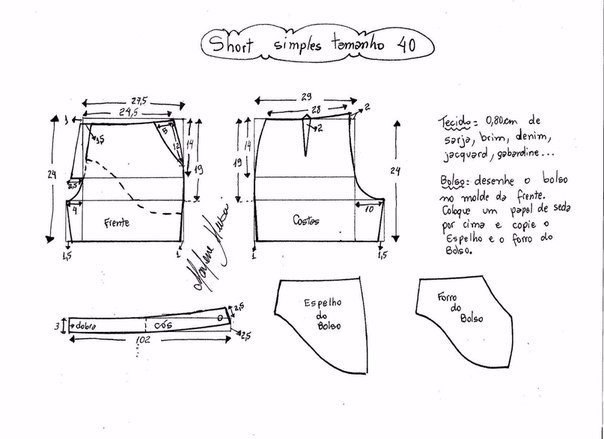 Short simples tamanho 40
27,5
24,5
1
1,5
5
12
14
19
24
3,5
4
Frente
1,5
1
29
28
2
2
14
19
24
10
Costas
1
1,5
Tecido: 0,80cm de
sarja, brim, denim,
jacquard, gabardine...
Bolso: desenhe o bolso
no molde da frente.
Coloque um papel de seda
por cima e copie o
Espelho e o forro do
Bolso.
3
dobra
cós
2,5
2,5
102
Espelho
do
Bolso
Forro
do
Bolso